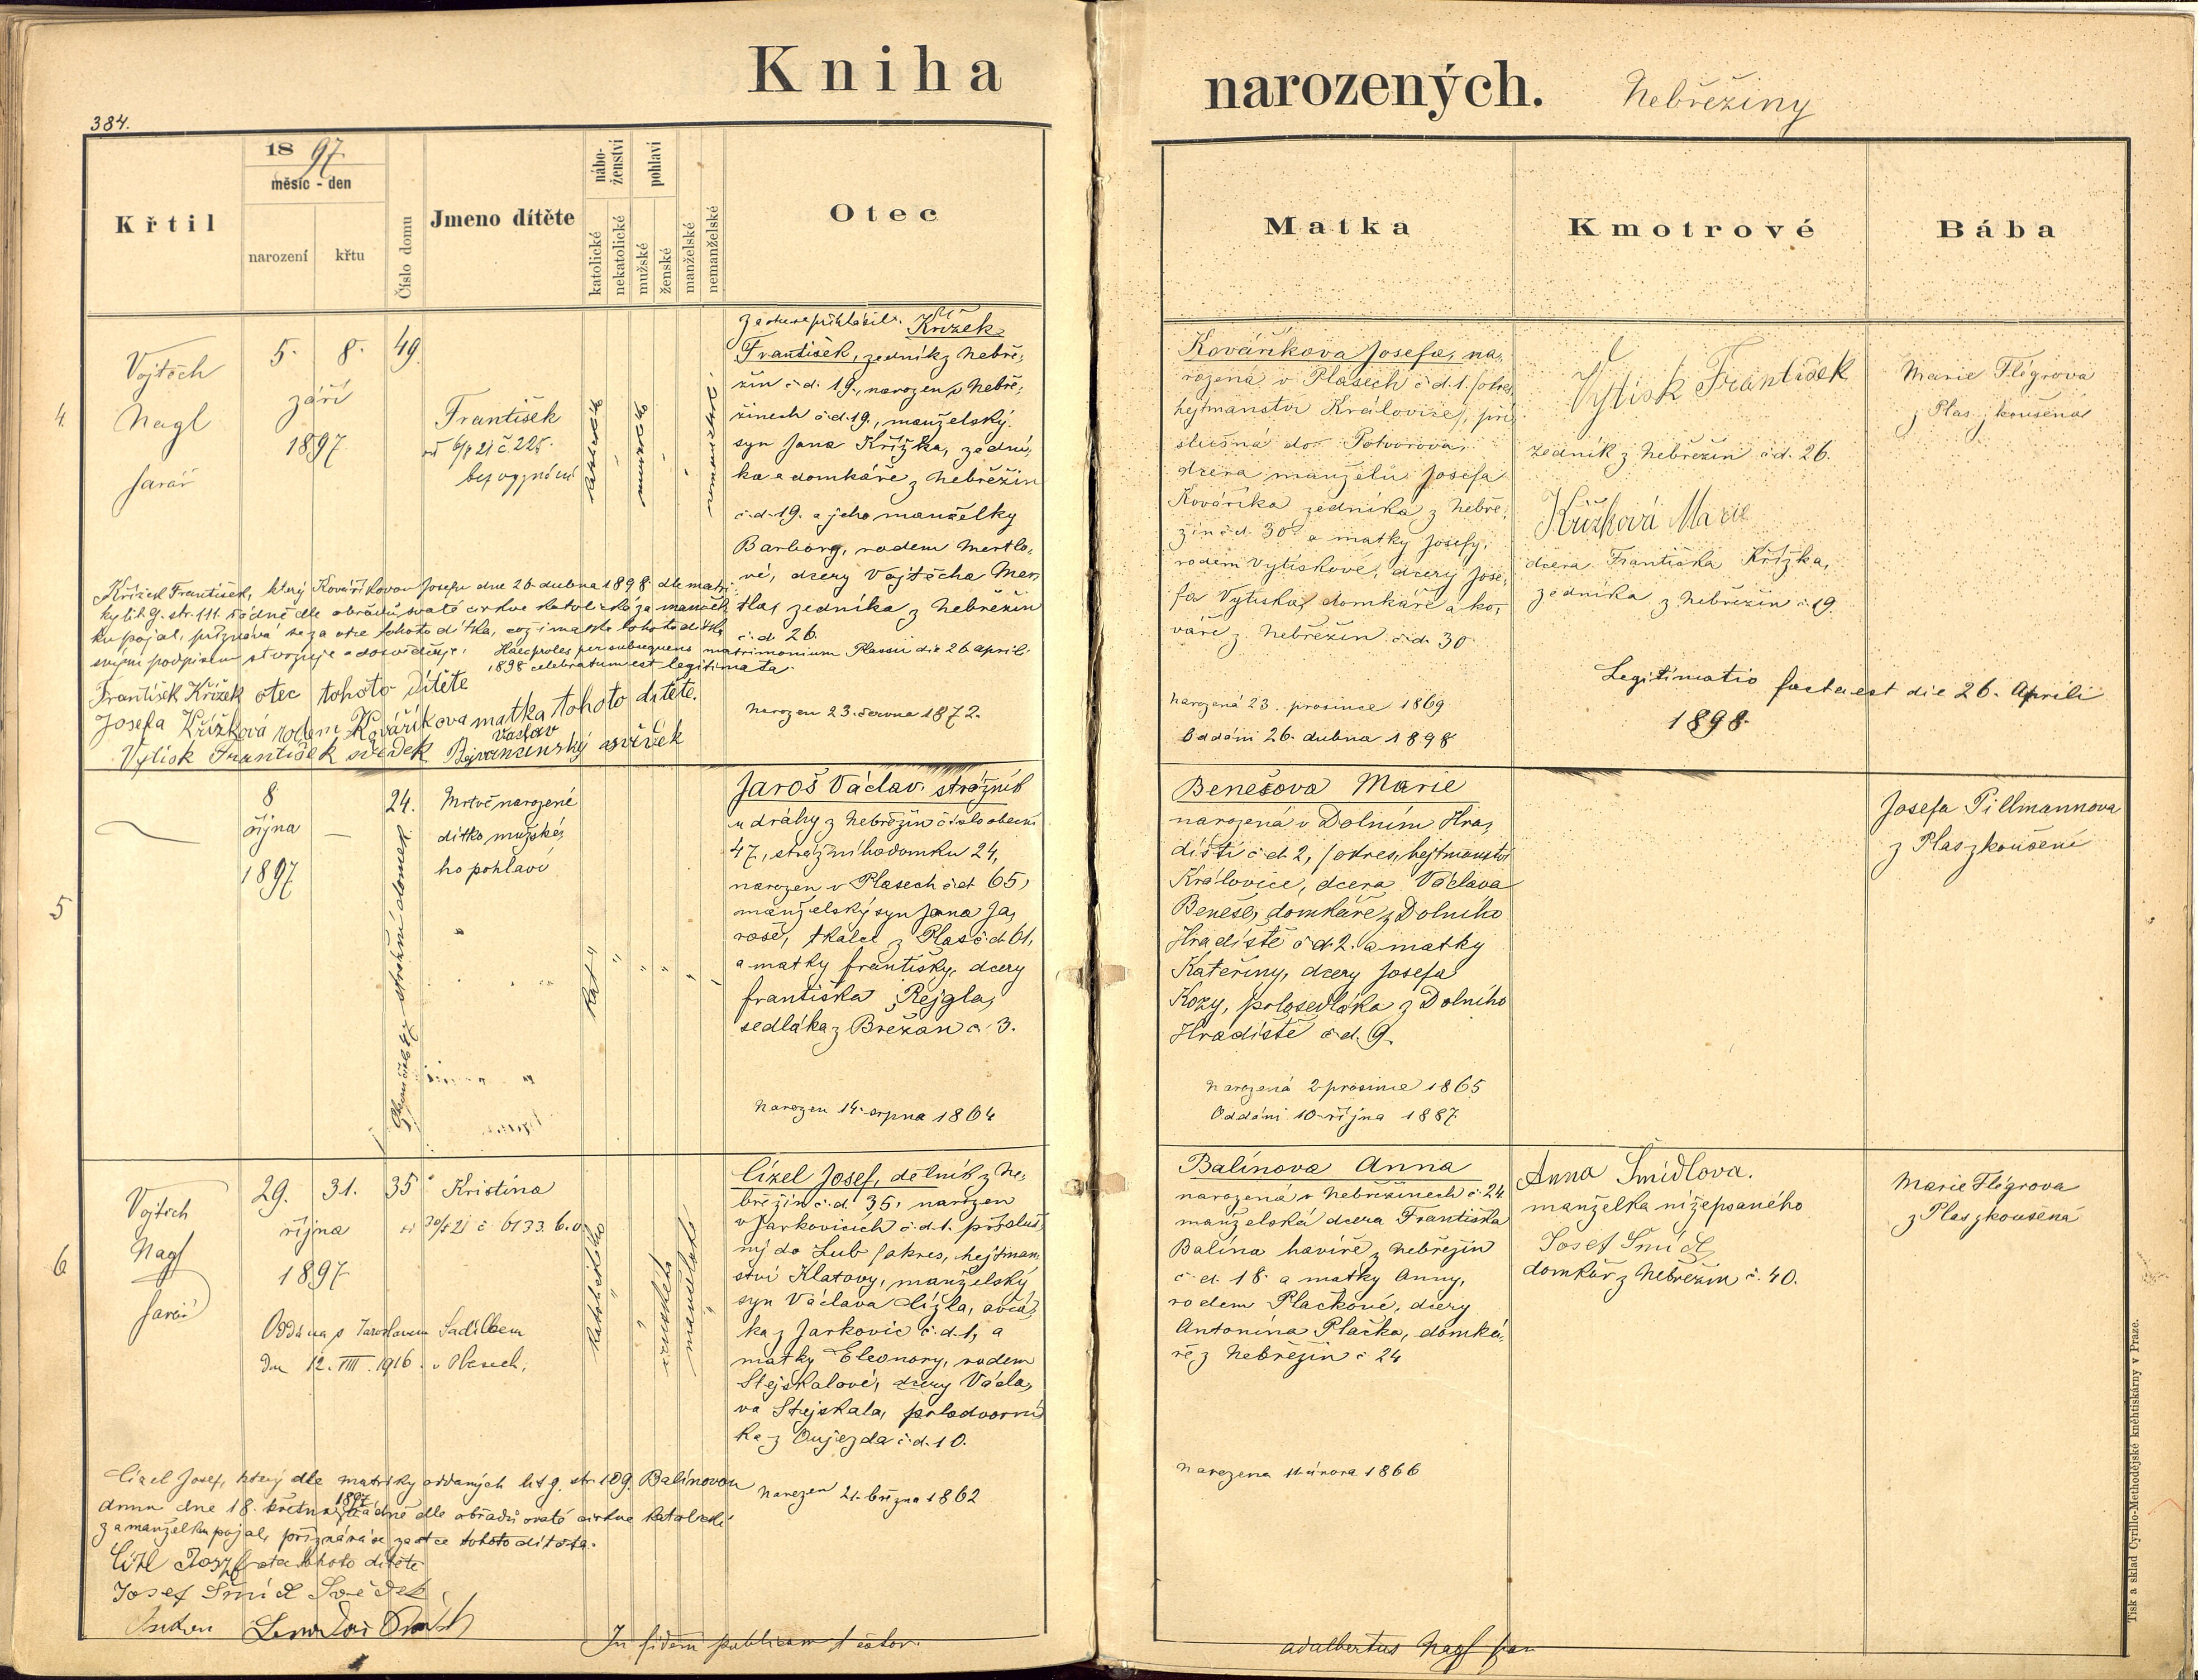 Kniha
narozených.
Nebřeziny
384.
Křtil
18 97
měsíc - den
narození
křtu
Číslo domu
Jmeno dítěte
nábo-
ženství
katolické
nekatolické
pohlaví
mužské
ženské
manželské
nemanželské
Otec
Matka
Kmotrové
Bába
4.
Vojtěch
Nagl
farář
5.
8.
září
1897
49.
František
bez vyznání
katolické
mužské
nemanželské
Za otce přihlásil: Křížek
František, zedník z Nebře-
žin č.d. 19., narozen v Nebře-
žinech č.d. 19., manželský
syn Jana Křížka, zední-
ka a domkáře z Nebřežin
č.d. 19. a jeho manželky
Barbory, rodem Mertlo-
vé, dcery Vojtěcha Mer-
tla, zedníka z Nebřežin
č.d. 26.
Narozen 23. června 1872.
Křížek František, který Kovaříkovou Josefu dne 26. dubna 1898 dle matri-
ky lit. 9. str. 111. řádně dle obřadů svaté církve katolické za manžel-
ku pojal, přiznává se za otce tohoto dítka, což i matka tohoto dítka
svým podpisem stvrzuje a dosvědčuje. Haec proles per subsequens matrimonium Plassii die 26 april.
1898 celebratum est legitimata.
František Křížek otec tohoto dítěte
Josefa Křížková rodem Kovaříkova matka tohoto dítěte.
Vytisk František svědek
Václav
Kovaříkova Josefa, na-
rozená v Plasech č.d. 1. /okres.
hejtmanství Kralovice/, pří-
slušná do Potvorova,
dcera manželů Josefa
Kovaříka zedníka z Nebře-
žin č.d. 30 a matky Josefy,
rodem Vytiskové, dcery Jose-
fa Vytiska, domkáře a ko-
váře z Nebřežin č.d. 30
Narozená 23. prosince 1869
Oddáni 26. dubna 1898
Vytisk František
zedník z Nebřežin č.d. 26.
Křížková Marie
dcera Františka Křížka,
zedníka z Nebřežin č. 19.
Legitimatio facta est die 26. Aprili
1898.
Marie Flégrova
z Plas, zkoušená
5
8
října
1897
24.
strážní domek
Mrtvě narozené
dítko mužské-
ho pohlaví
kat
Jaroš Václav, strážník
u dráhy z Nebřežin číslo obecní
47, strážního domku 24,
narozen v Plasech č.d. 65,
manželský syn Jana Ja-
roše, tkalce z Plas č.d. 61,
a matky Františky, dcery
Františka Rejgla,
sedláka z Břežan č. 3.
Narozen 14. srpna 1864
Benešova Marie
narozená v Dolním Hra-
dišti č.d. 2, /okres. hejtmanství
Kralovice, dcera Václava
Beneše, domkáře z Dolního
Hradiště č.d. 2. a matky
Kateřiny, dcery Josefa
Kozy, polosedláka z Dolního
Hradiště č.d. 9.
Narozená 2 prosince 1865
Oddáni 10. října 1887
Josefa Pillmannova
z Plas zkoušené
6
Vojtěch
Nagl
farář
29.
31.
října
1897
35
Kristina
Oddána s Jaroslavem Sadílkem
dne 12. VIII. 1916. v Plasech.
katolické
ženské
manželské
Cízel Josef, dělník z Ne-
břežin č.d. 35, narozen
v Jarkovicích č.d. 1. přísluš-
ný do Lub /okres. hejtman-
ství Klatovy, manželský
syn Václava Cízla, ovčá-
ka z Jarkovic č.d. 1, a
matky Eleonory, rodem
Stejskalové, dcery Václa-
va Stejskala, polodvorní-
ka z Oujezda č.d. 10.
Narozen 21. března 1862
Cízel Josef, který dle matriky oddaných lit. 9. str. 109. Balínovou
Annu dne 18. května 1897 řádně dle obřadů svaté církve katolické
za manželku pojal, přiznává se za otce tohoto dítěte.
Cízl Josef otec tohoto dítěte
Josef Šmíd Svědek
In fidem publicam testor.
Balínova Anna
narozená v Nebřežinech č. 24
manželská dcera Františka
Balína havíře z Nebřežin
č.d. 18. a matky Anny,
rodem Plačkové, dcery
Antonína Plačka, domká-
ře z Nebřežin č. 24
Narozena 11. února 1866
Anna Šmídlova.
manželka nížepsaného
Josef Šmídl
domkář z Nebřežin č. 40.
Marie Flégrova
z Plas zkoušená
adalbertus Nagl
Tisk a sklad Cyrillo-Methodějské kněhtiskárny v Praze.